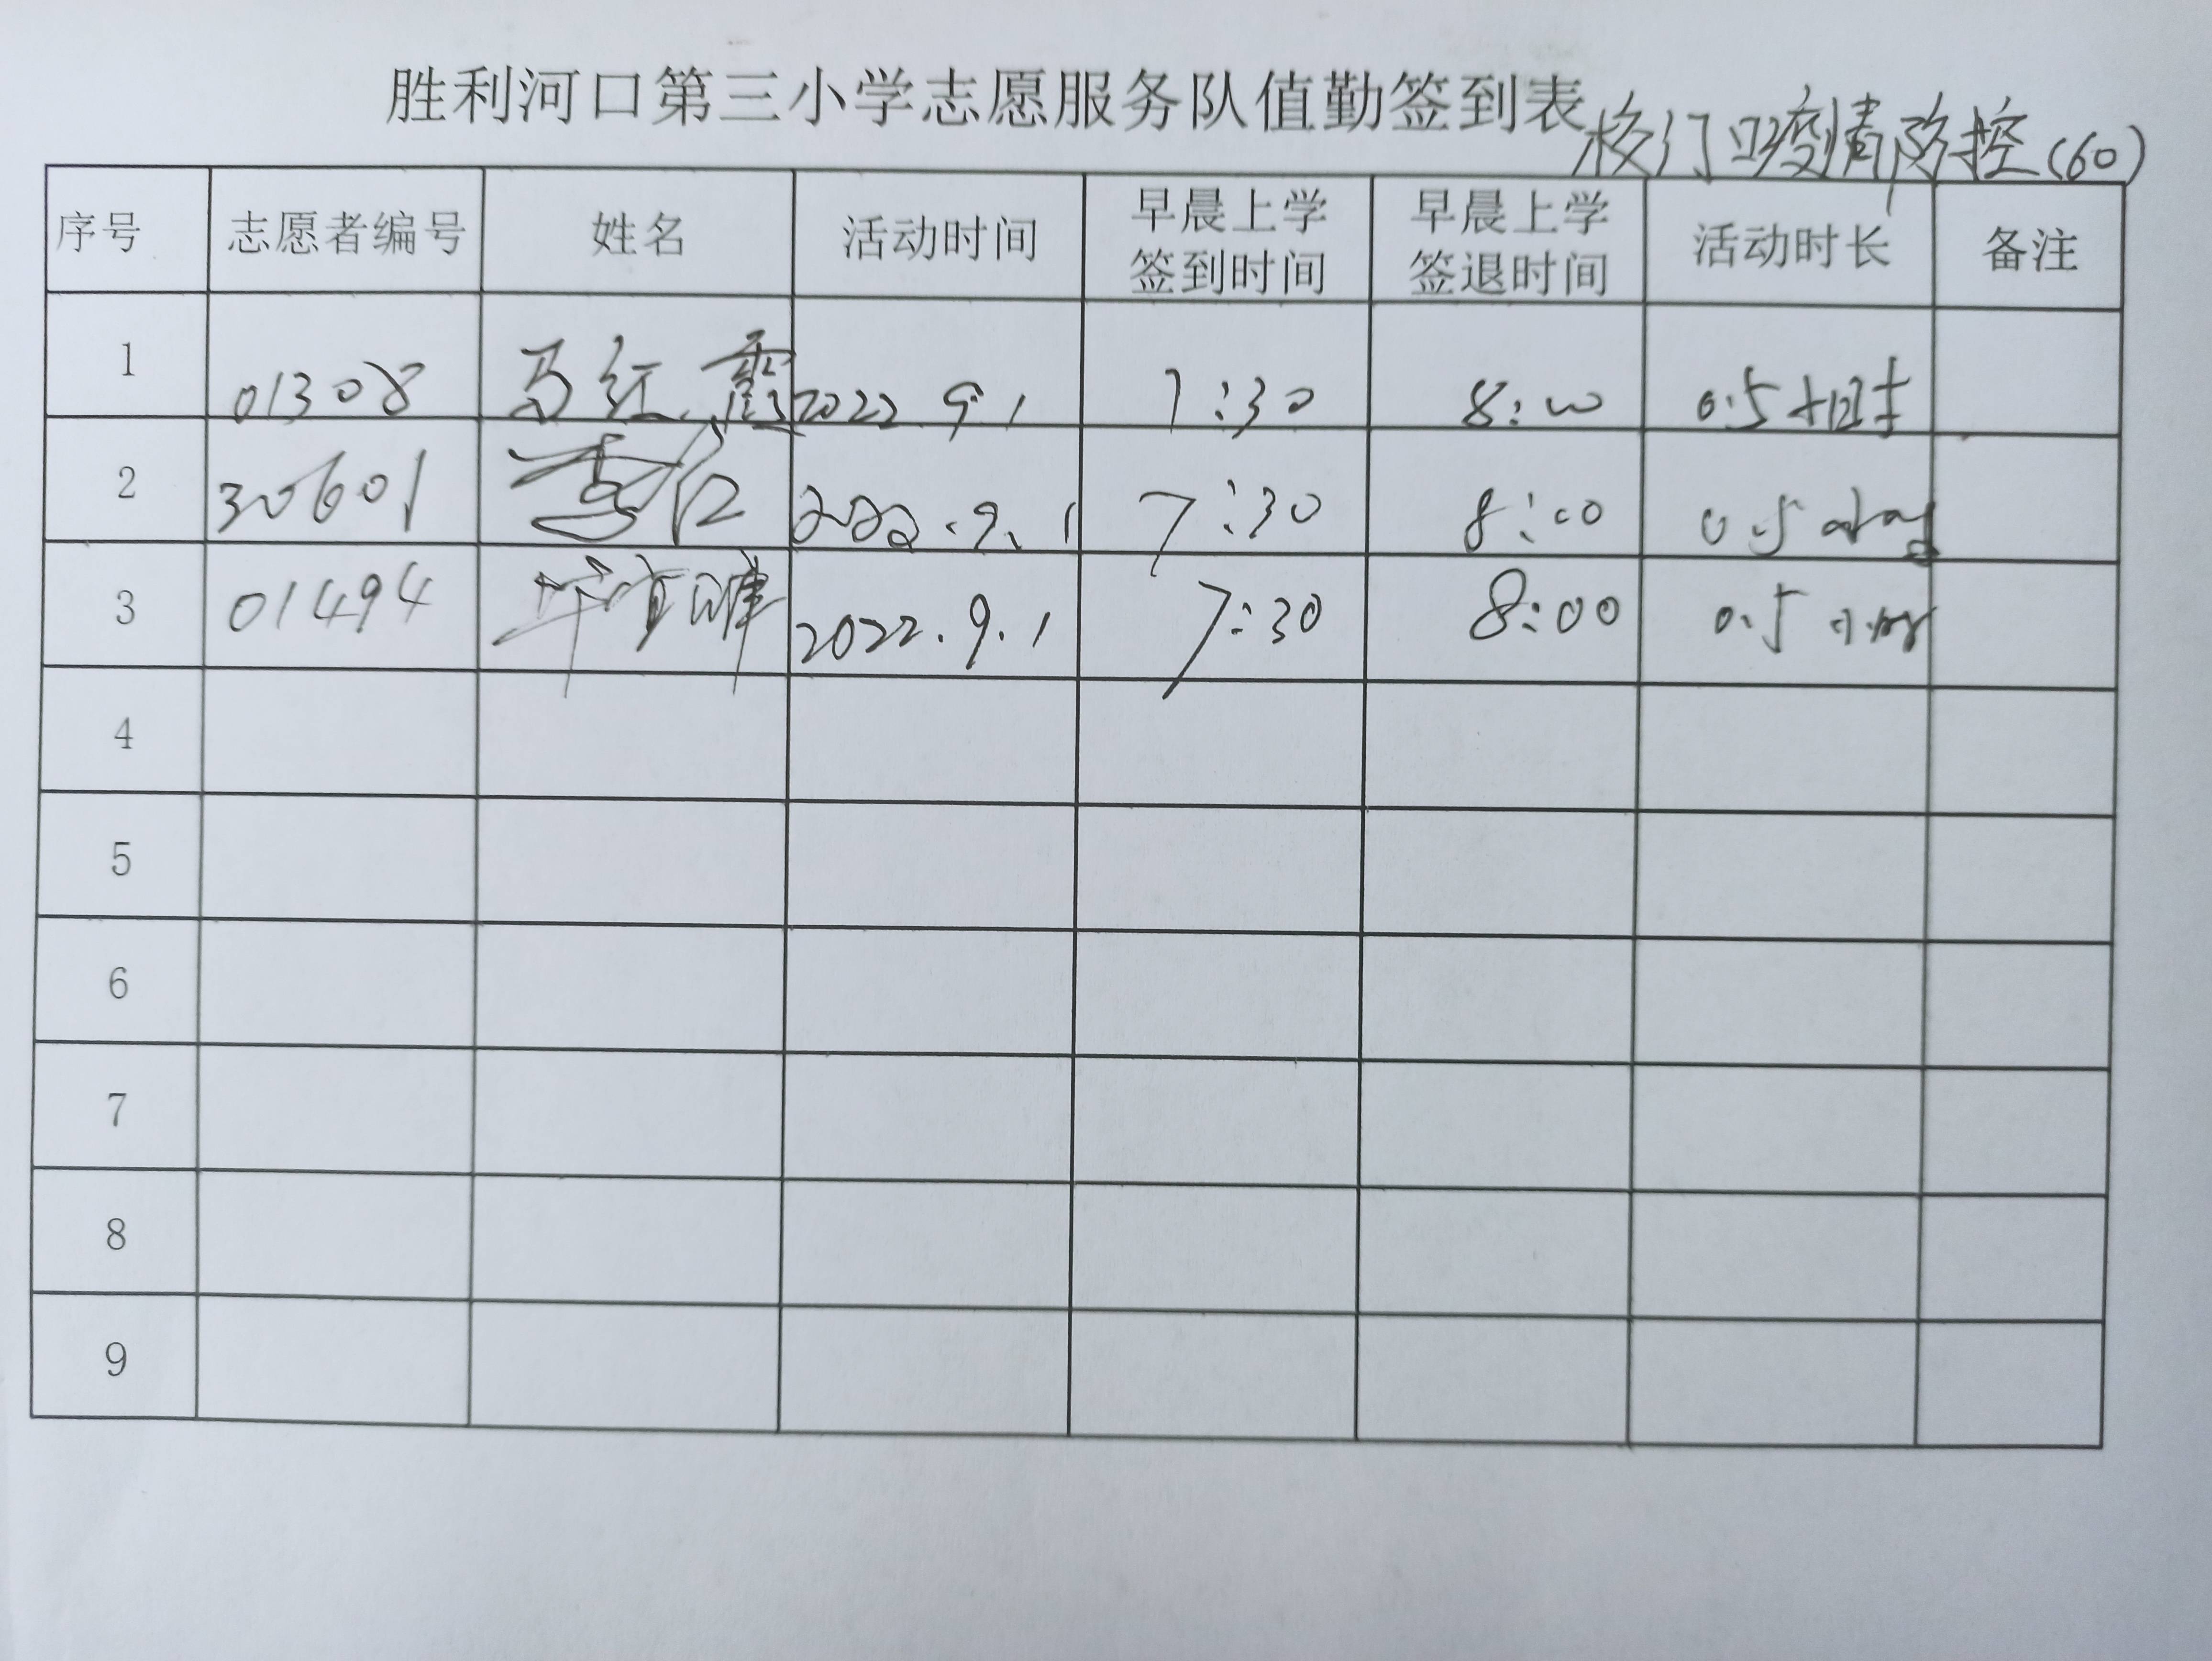 胜利河口第三小学志愿服务队值勤签到表 校门口疫情防控(60)
序号 志愿者编号 姓名 活动时间 早晨上学签到时间 早晨上学签退时间 活动时长 备注
1 01308 马红霞 2022.9.1 7:30 8:00 0.5小时
2 30601 李 2022.9.1 7:30 8:00 0.5小时
3 01494 2022.9.1 7:30 8:00 0.5小时
4
5
6
7
8
9